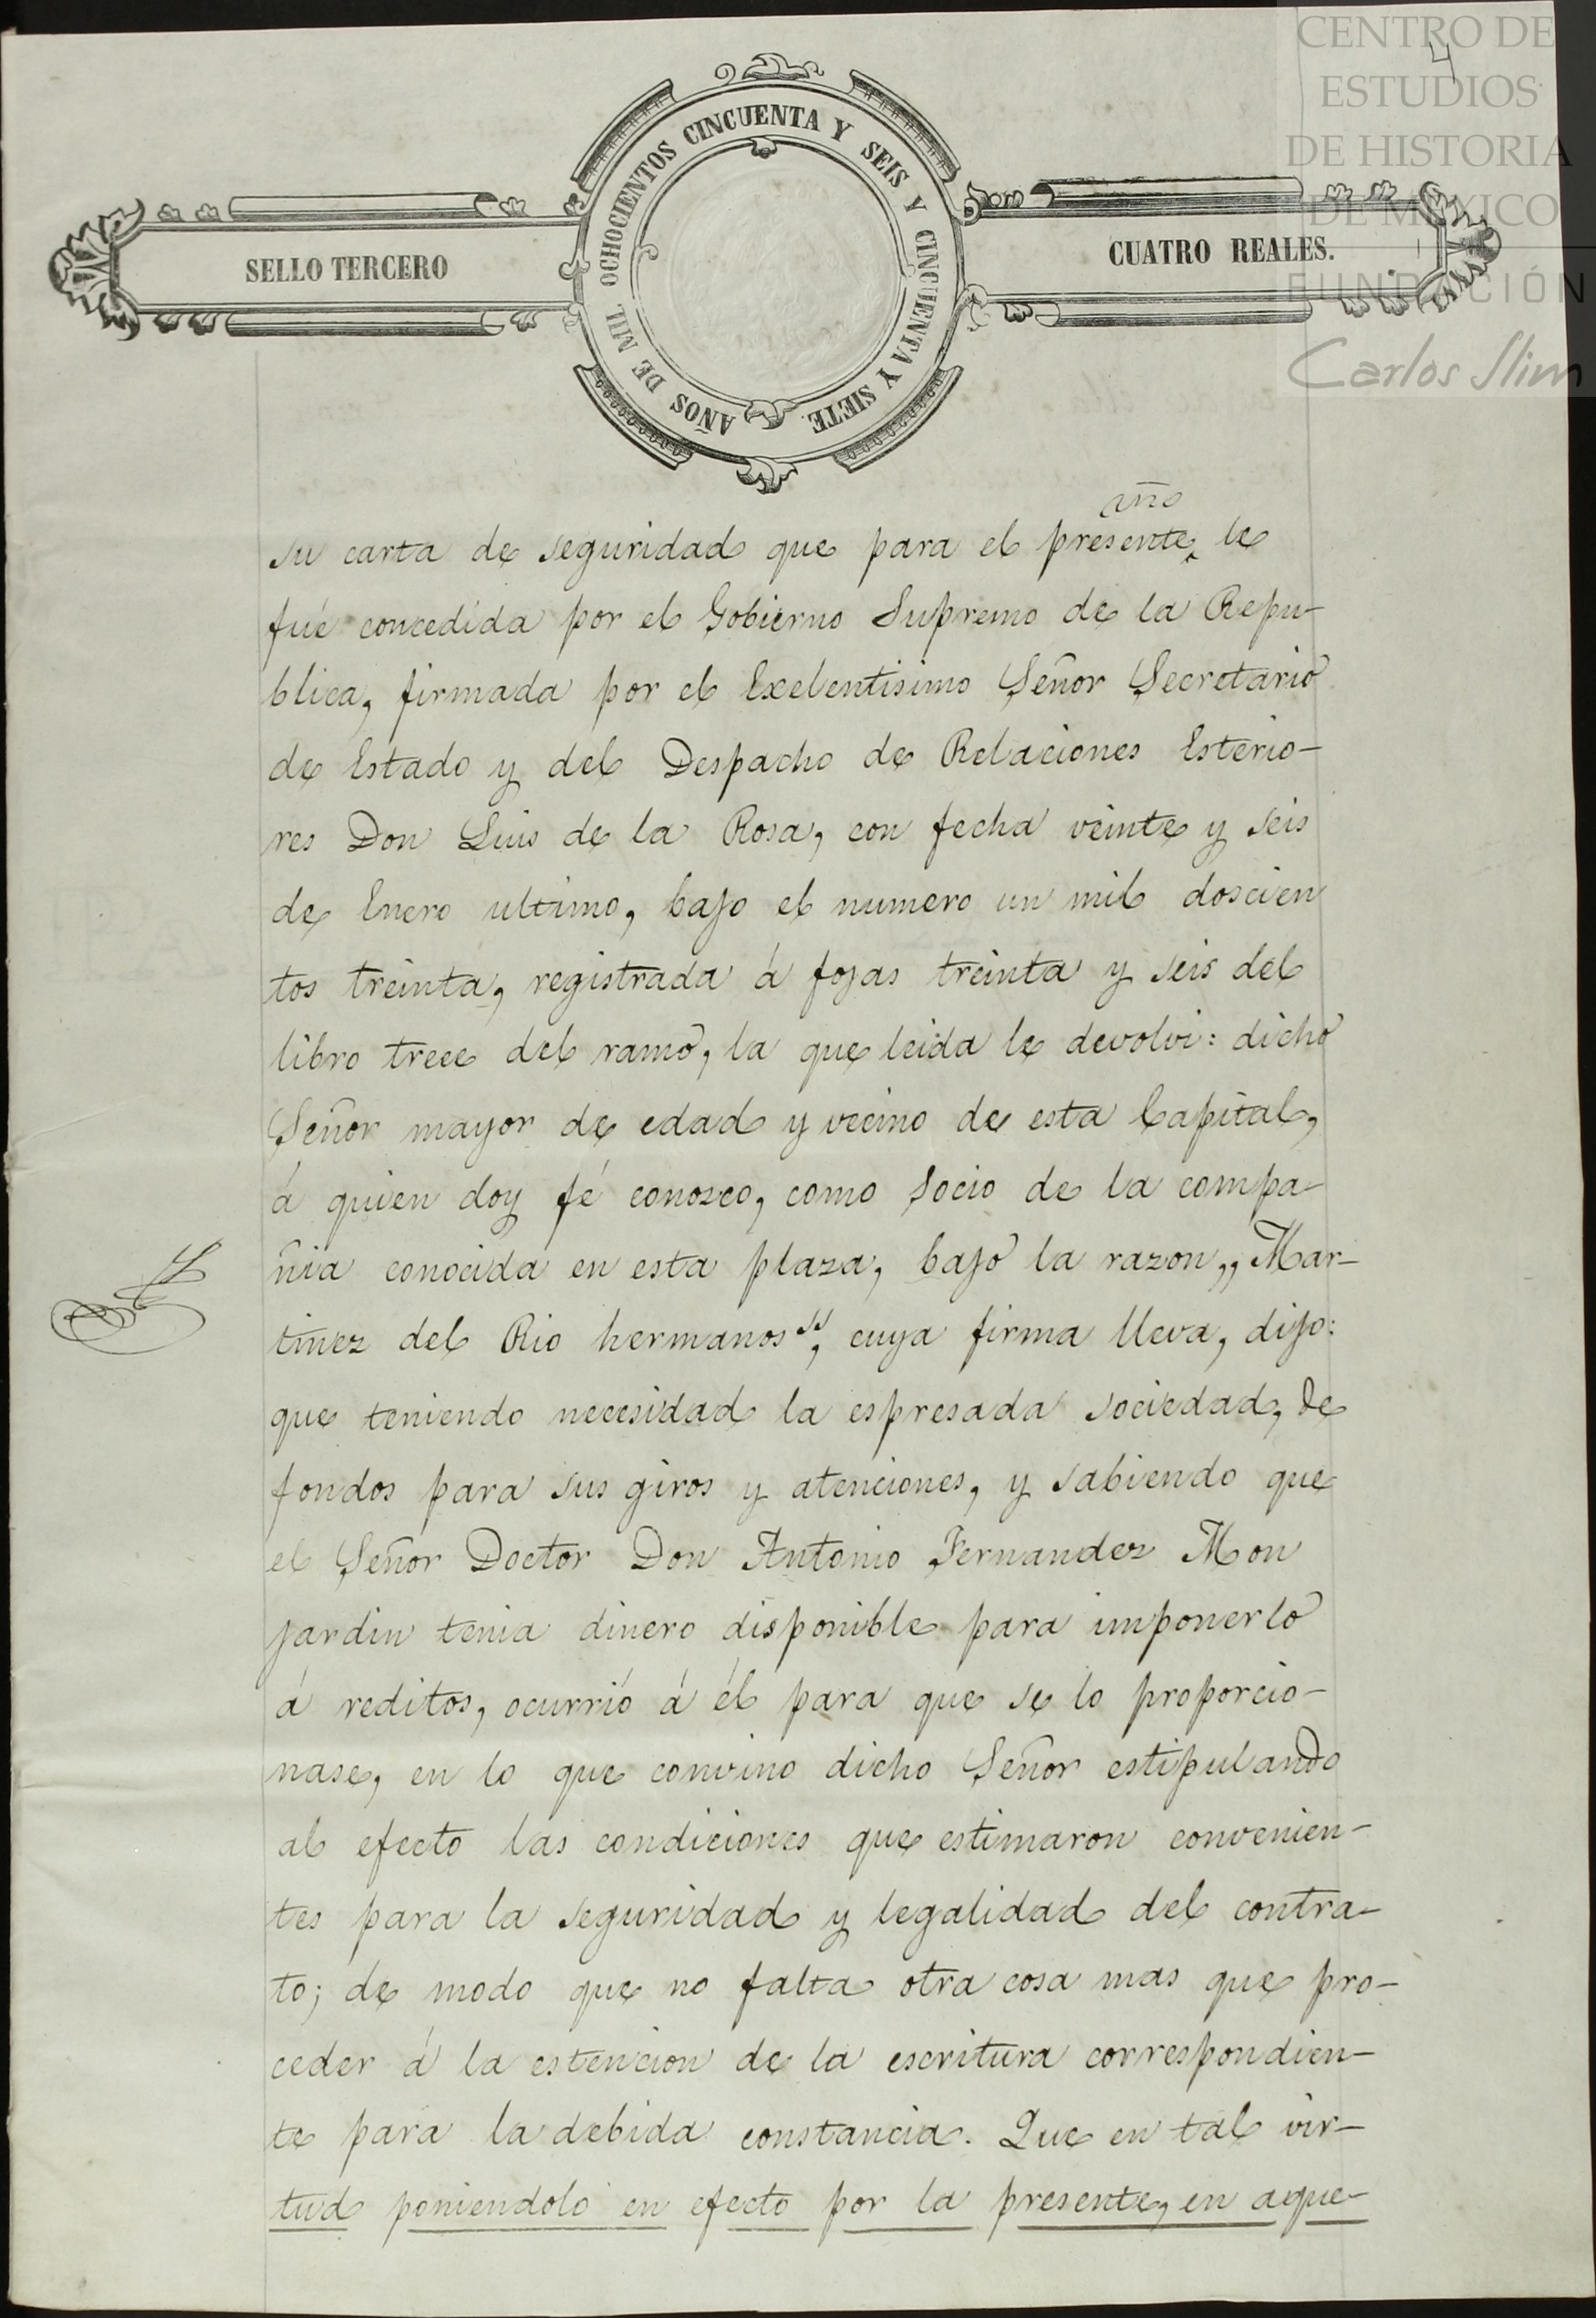 CENTRO DE
ESTUDIOS
DE HISTORIA
DE MÉXICO
FUNDACIÓN
Carlos Slim
4
SELLO TERCERO
AÑOS DE MIL OCHOCIENTOS CINCUENTA Y SEIS Y CINCUENTA Y SIETE.
CUATRO REALES.
año
su carta de seguridad que para el presente, le
fué concedida por el Gobierno Supremo de la Repu-
blica, firmada por el Exelentisimo Señor Secretario
de Estado y del Despacho de Relaciones Esterio-
res Don Luis de la Rosa, con fecha veinte y seis
de Enero ultimo, bajo el numero un mil doscien
tos treinta, registrada á fojas treinta y seis del
libro trece del ramo, la que leida le devolvi: dicho
Señor mayor de edad y vecino de esta Capital,
á quien doy fé conozco, como socio de la compa-
ñia conocida en esta plaza, bajo la razon „Mar-
tinez del Rio hermanos", cuya firma lleva, dijo:
que teniendo necesidad la espresada sociedad, de
fondos para sus giros y atenciones, y sabiendo que
el Señor Doctor Don Antonio Fernandez Mon
jardin tenia dinero disponible para imponerlo
á reditos, ocurrió á él para que se lo proporcio-
nase, en lo que convino dicho Señor estipulando
al efecto las condiciones que estimaron convenien-
tes para la seguridad y legalidad del contra-
to; de modo que no falta otra cosa mas que pro-
ceder á la estencion de la escritura correspondien-
te para la debida constancia. Que en tal vir-
tud poniendolo en efecto por la presente, en aque-